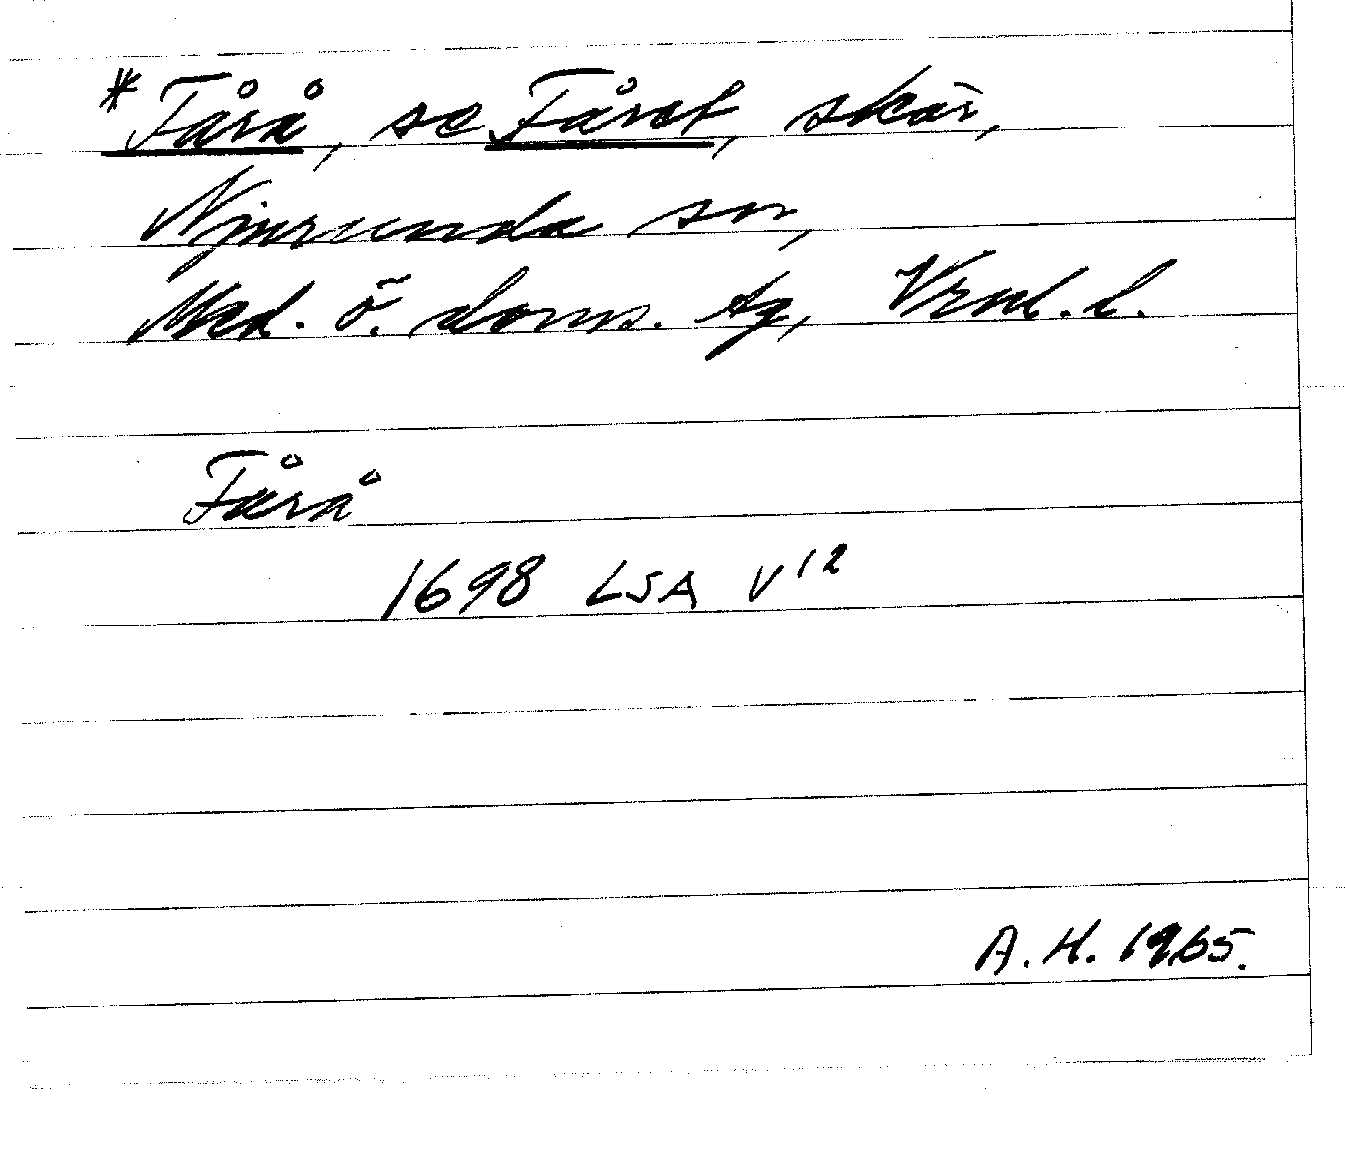 *Fårå, se Fåret, skär,
Njurunda sn,
Med. ö. doms. tg, Vrnl. l.
Fårå
1698 LSA V12
A.H. 1965.